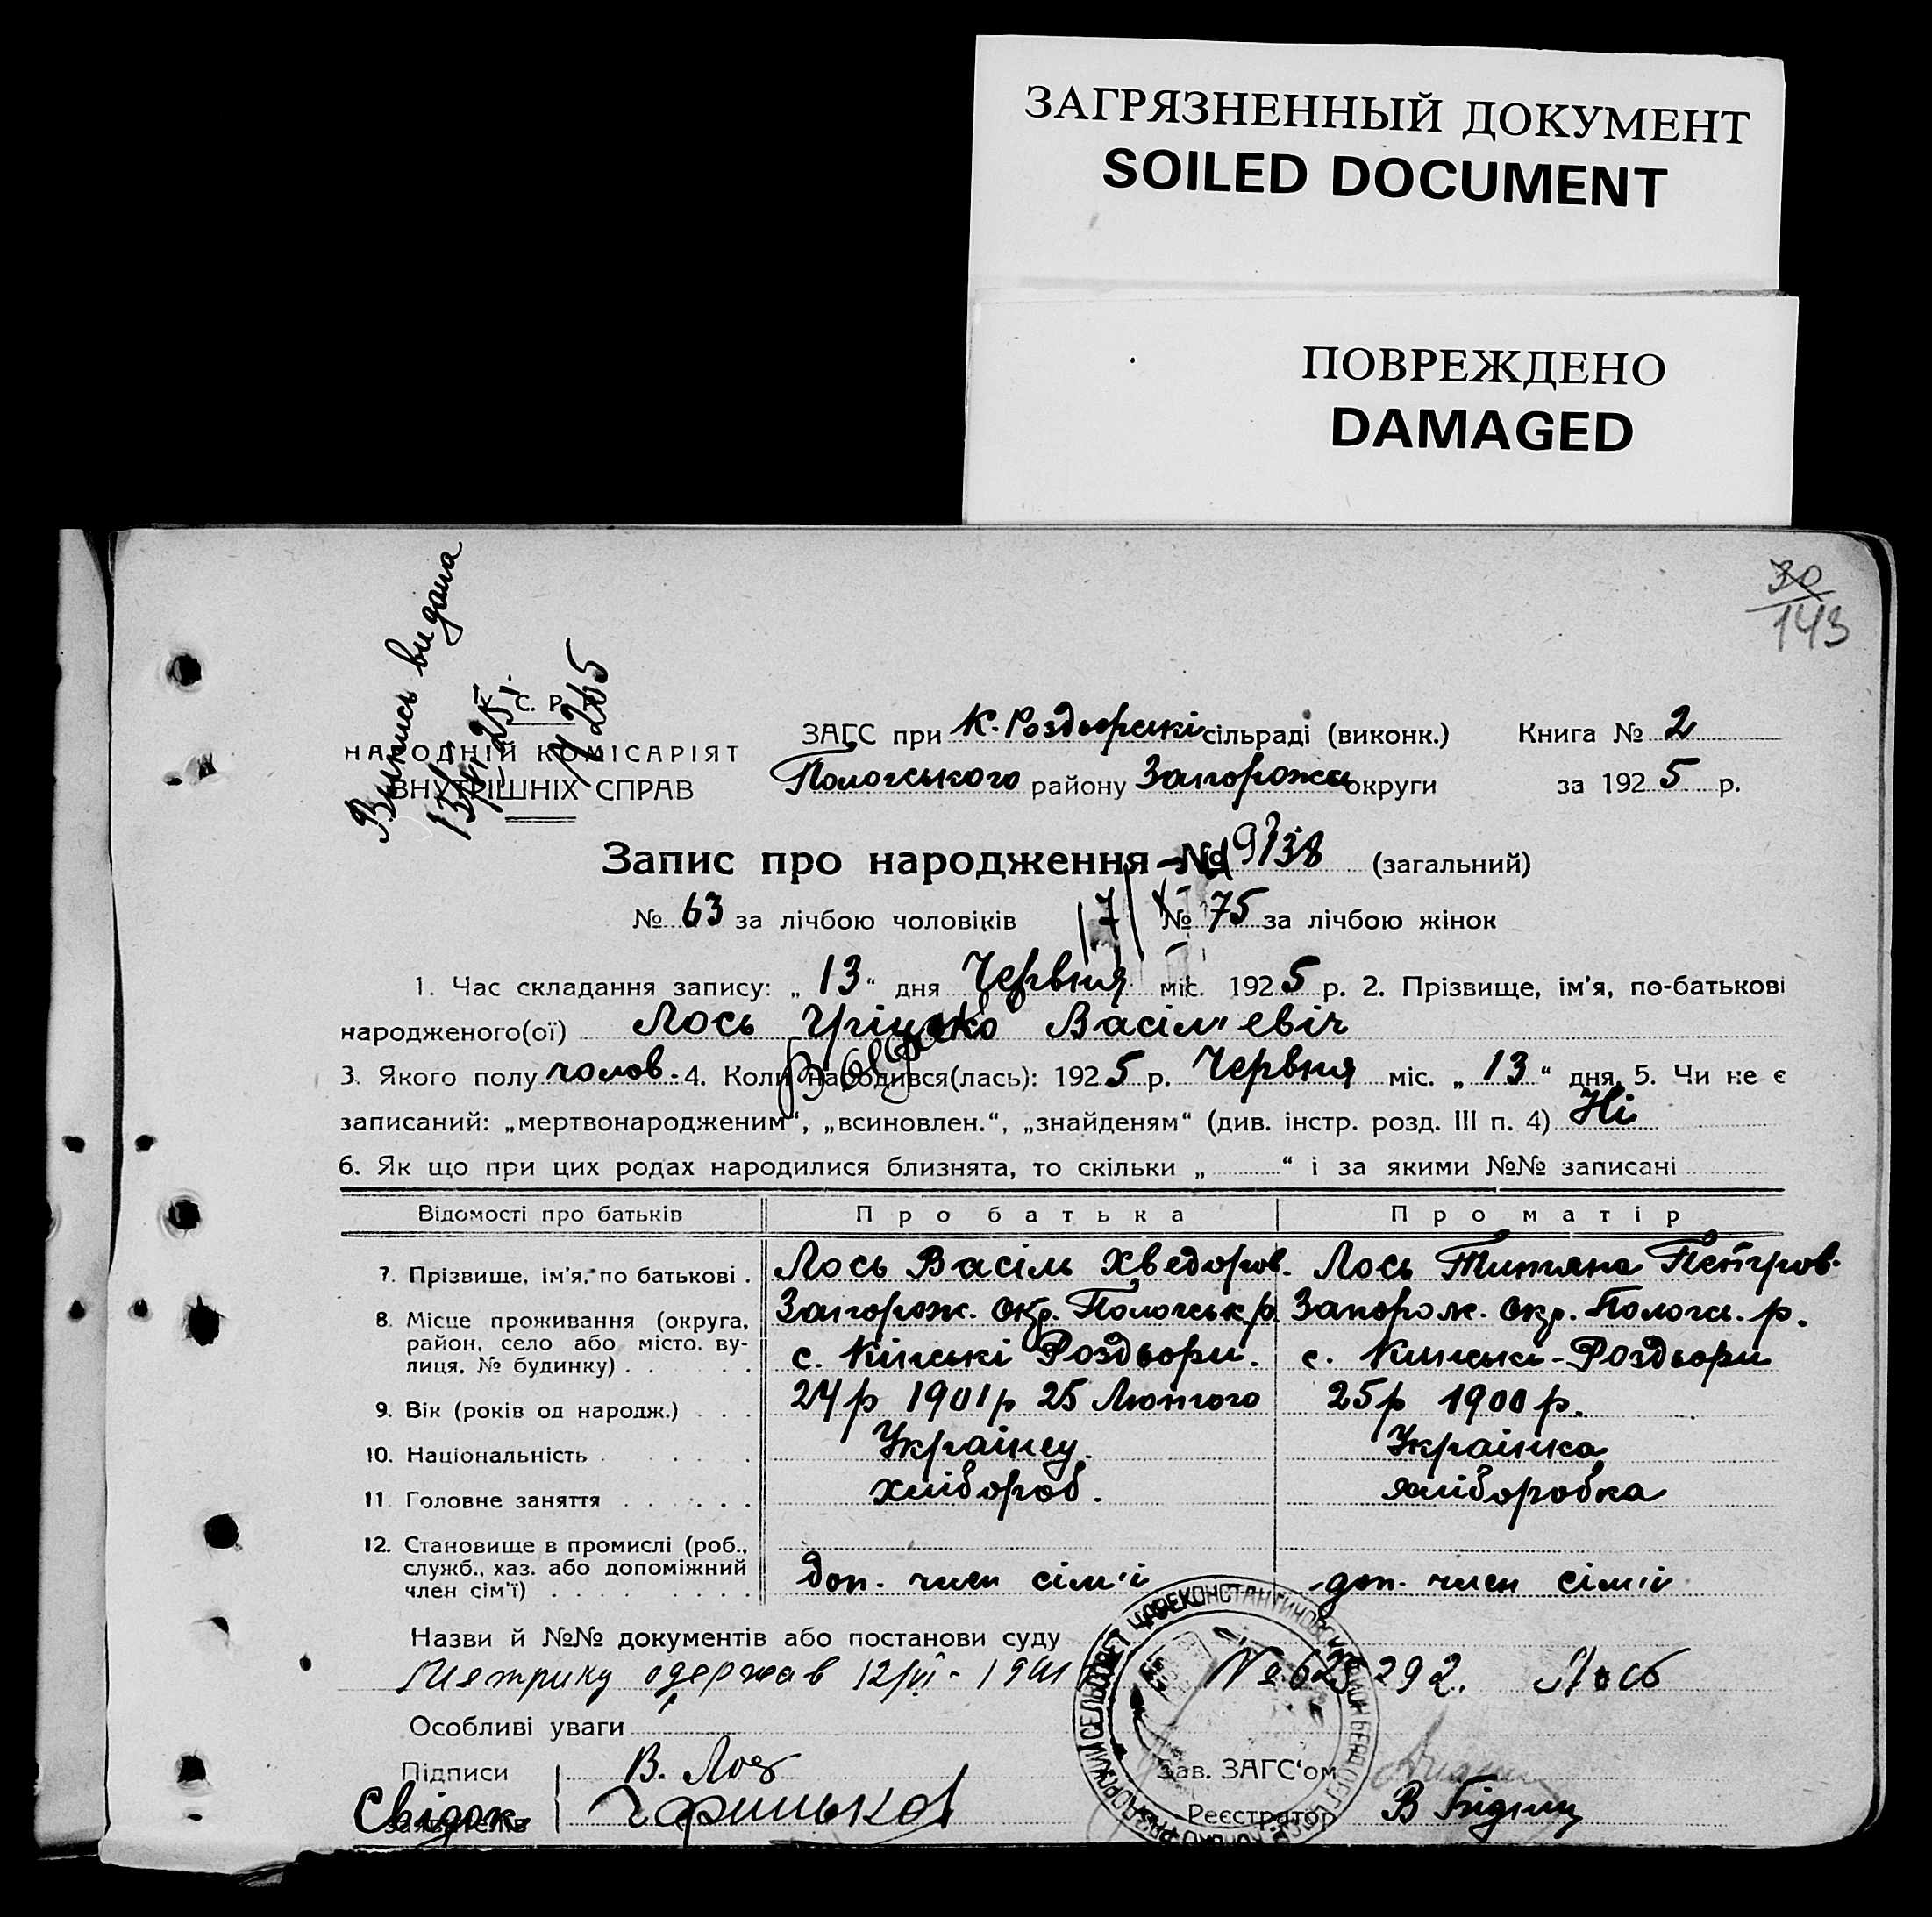 ЗАГРЯЗНЕННЫЙ ДОКУМЕНТ
SOILED DOCUMENT
ПОВРЕЖДЕНО
DAMAGED
30
143
Випись видана
У. С. Р. Р.
НАРОДНІЙ КОМІСАРІЯТ
ВНУТРІШНІХ СПРАВ
ЗАГС при К. Роздорскі сільраді (виконк.) Книга № 2
Пологського району Запорожск округи за 1925 р.
Запис про народження № 138 (загальний)
№ 63 за лічбою чоловіків № 75 за лічбою жінок
1. Час складання запису: „ 13 “ дня Червня міс. 1925 р. 2. Прізвище, ім'я, по-батькові
народженого(ої) Лось Гріцько Васіл'евіч
3. Якого полу чолов. 4. Коли народився(лась): 1925 р. Червня міс. „ 13 “ дня. 5. Чи не є
записаний: „мертвонародженим“, „всиновлен.“, „знайденям“ (див. інстр. розд. III п. 4) Ні
6. Як що при цих родах народилися близнята, то скільки „ “ і за якими №№ записані
Відомості про батьків Про батька Про матір
7. Прізвище, ім'я, по батькові . Лось Васіль Хведоров. Лось Титяна Петров.
8. Місце проживання (округа, район, село або місто, вулиця, № будинку) . . Запорож. окр. Пологськ р. Запорож. окр. Пологс. р.
с. Кінські Роздори. с. Кинські-Роздори
9. Вік (років од народж.) . . . 24 р 1901 р 25 Лютого 25 р 1900 р.
10. Національність . Українец. Українка
11. Головне заняття . хлібороб. хліборобка
12. Становище в промислі (роб., служб., хаз. або допоміжний член сім'ї) доп. член сім'ї доп. член сім'ї
Назви й №№ документів або постанови суду
Метрику одержав 12/VI - 1941 № 623292. Лось
Особливі уваги
Підписи В. Лось Зав. ЗАГС'ом
Свідок Реєстратор В